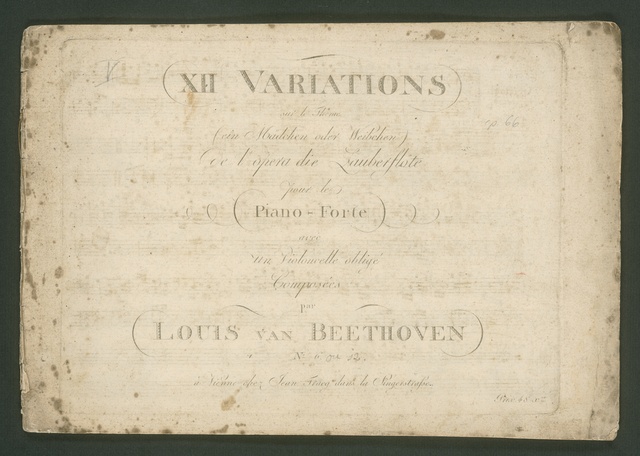 V
XII VARIATIONS
sur le Thême
(ein Mädchen oder Weibchen)
de l'opera die Zauberflöte
op. 66
pour le
(Piano-Forte)
avec
un Violoncelle obligé
Composées
par
LOUIS VAN BEETHOVEN
N. 6
à Vienne chez Jean Traeg dans la Singerstrasse